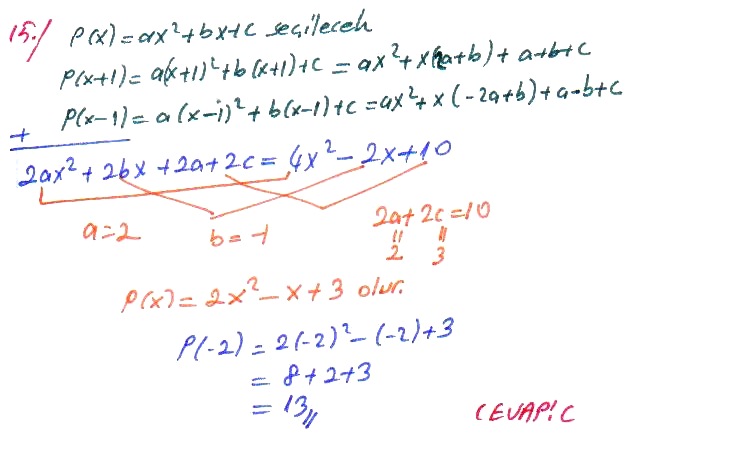 15./ P(x) = ax² + bx + c seçilecek
P(x+1) = a(x+1)² + b(x+1) + c = ax² + x(2a+b) + a+b+c
P(x-1) = a(x-1)² + b(x-1) + c = ax² + x(-2a+b) + a-b+c
+
2ax² + 2bx + 2a + 2c = 4x² - 2x + 10
a = 2 b = -1 2a + 2c = 10
= =
2 3
P(x) = 2x² - x + 3 olur.
P(-2) = 2(-2)² - (-2) + 3
= 8 + 2 + 3
= 13//
CEVAP: C